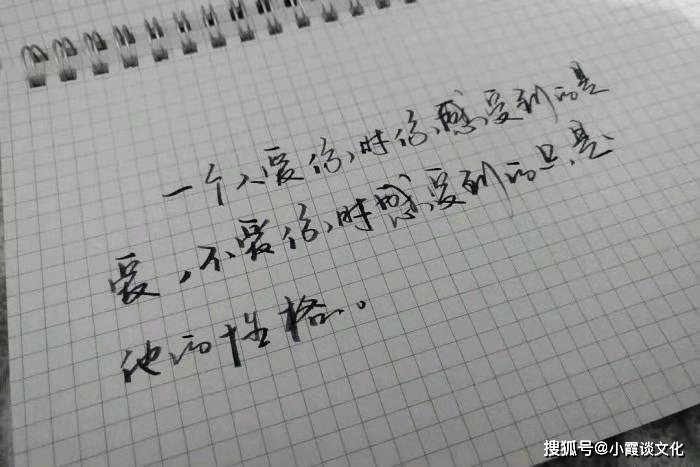 一个人爱你时你感受到的是
爱,不爱你时感受到的只是
他的性格。
搜狐号@小霞谈文化